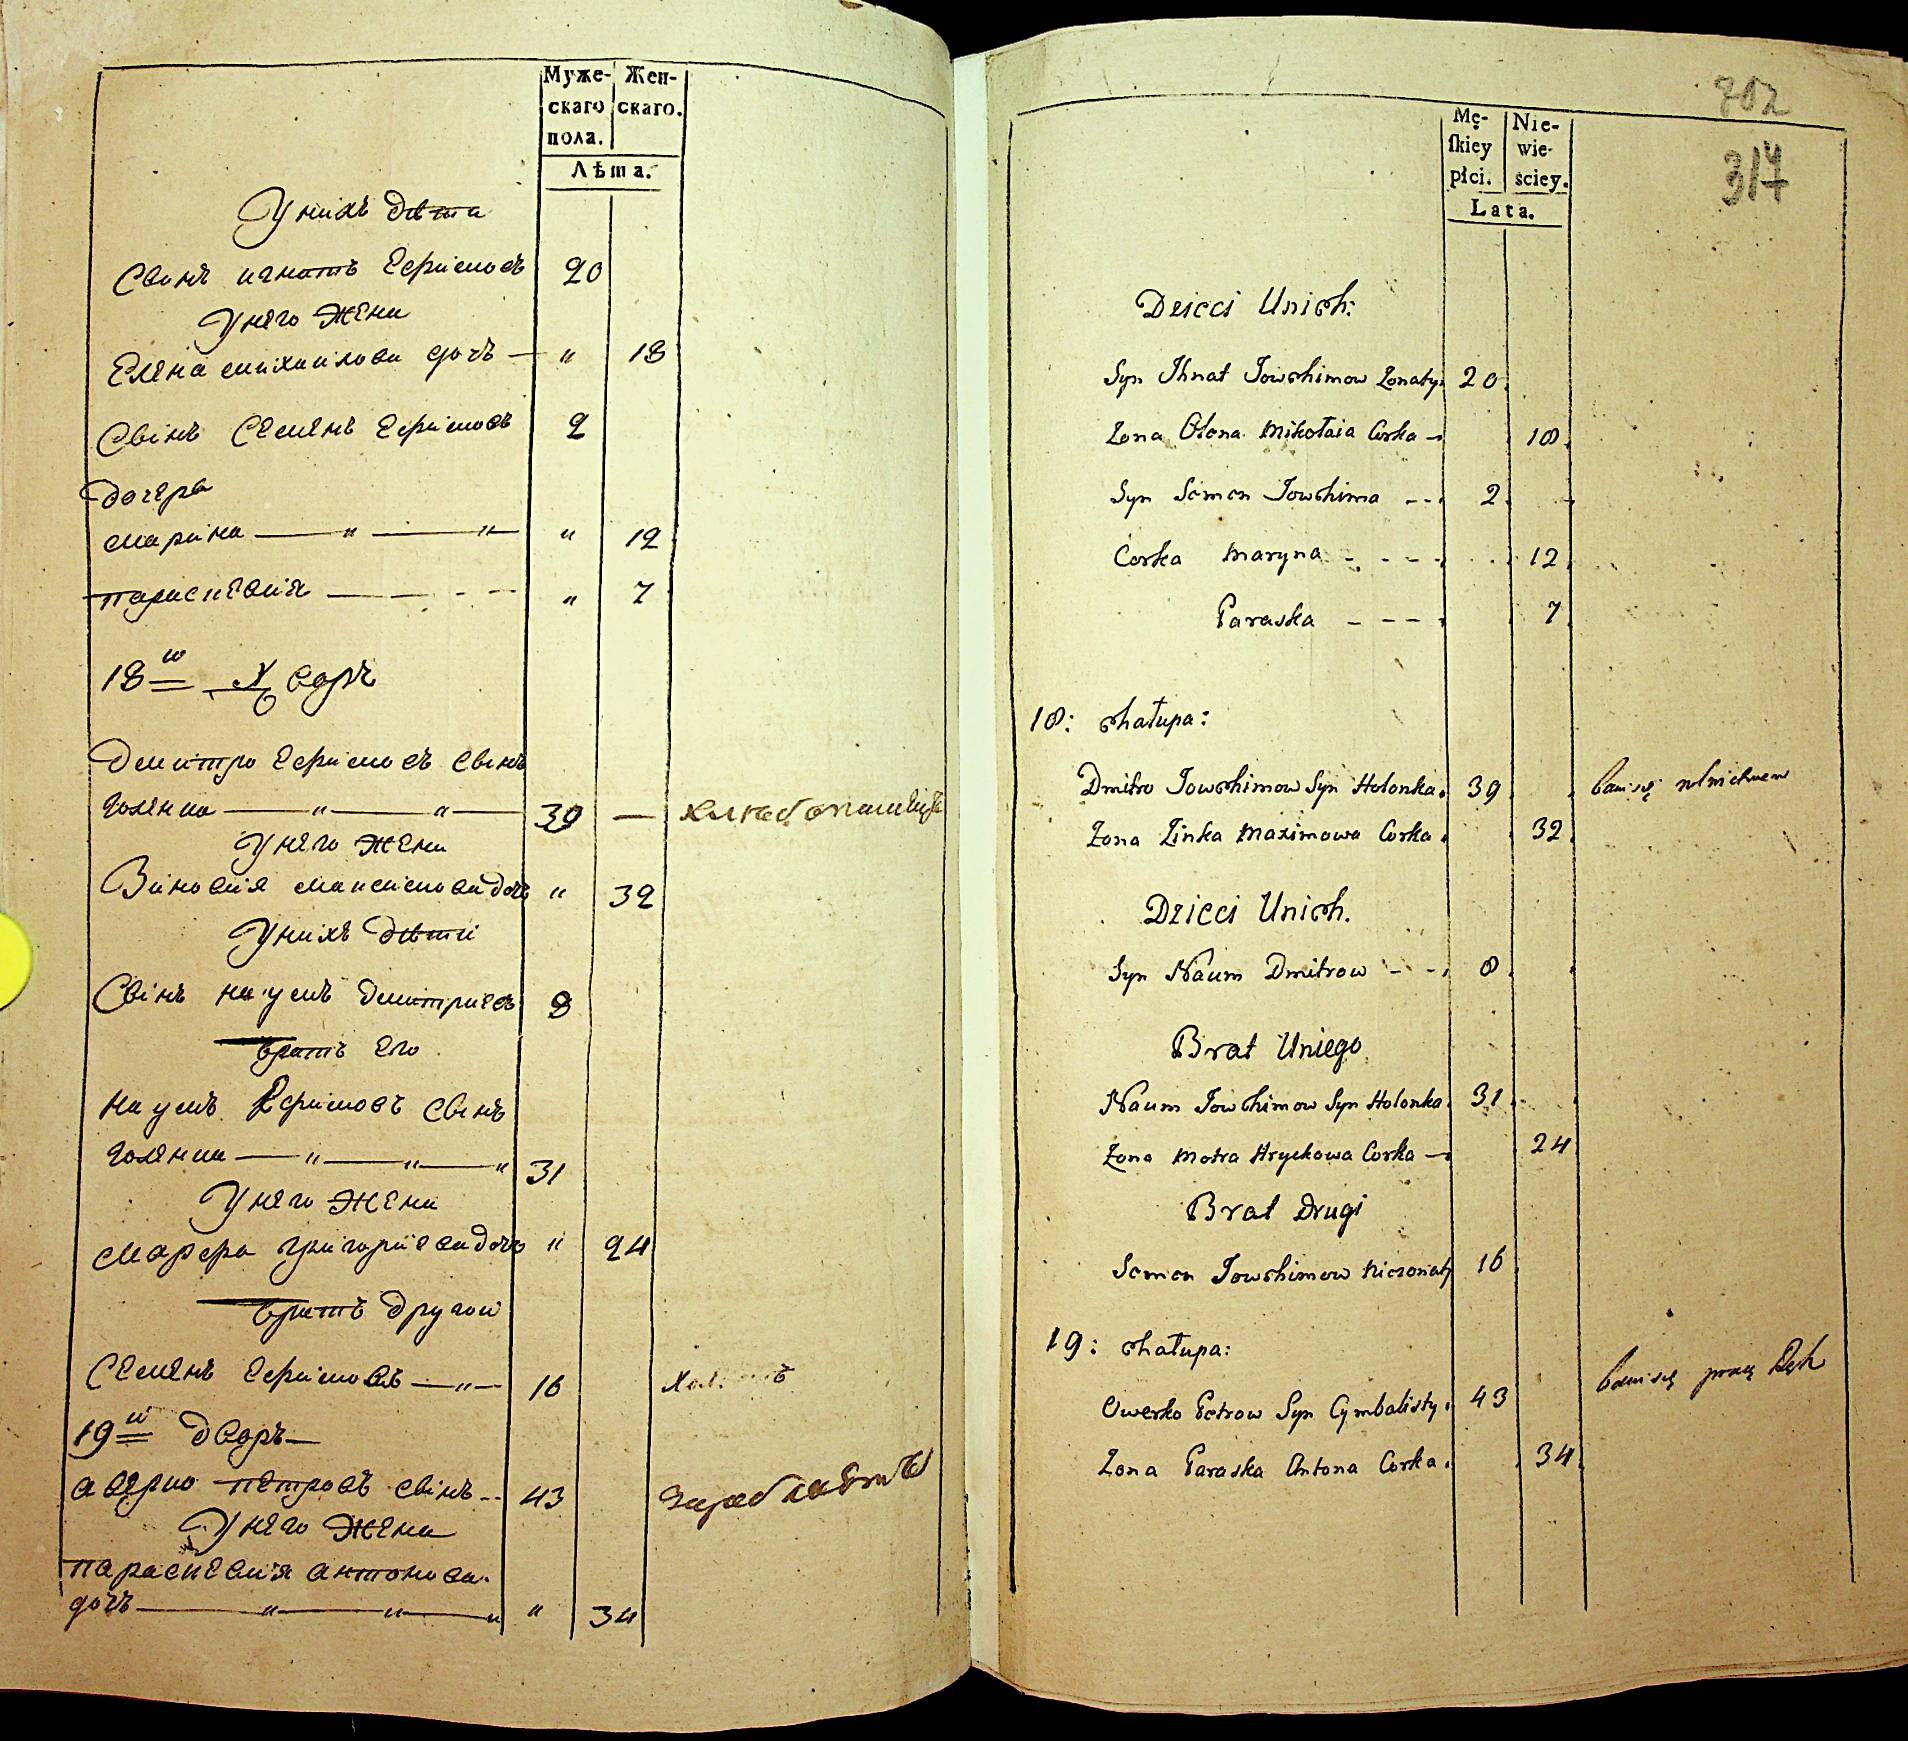 Муже-
скаго
пола.
Жен-
скаго.
Лѣта.
У нихъ дѣти
Синъ игнатъ Ефимовъ 20
У него Жена
Елена михаилова дочъ — " 18
Синъ Семенъ Ефимовъ 2
дочеры
марина — " — " " 12
параскевия — - - " 7
18й Дворъ
Дмитро Ефимовъ синъ
голенка — " — " — 39 — хлебопашецъ
У него Жена
Зиновия максимова дочъ " 32
У нихъ дѣти
Синъ наумъ дмитриевъ 8
братъ его
наумъ Ефимовъ синъ
голенка — " — " — " 31
У него Жена
марфа григориева дочъ " 24
братъ другои
Семенъ Ефимовъ — " — 16
19й дворъ —
аверко петровъ синъ - - 43
У него Жена
параскевия антонова
дочъ — " — " — " " 34
702
317
Mę-
ſkiey
płci.
Nie-
wie-
ściey.
Lata.
Dzieci Unich:
Syn Ihnat Jowchimow Zonaty 20
Zona Olena Mikołaia Corka — 18
Syn Semen Jowchima - - 2
Corka Maryna - - - - 12
Paraska - - - - 7
18: chałupa:
Dmitro Jowchimow Syn Holonka 39 bawi się rolnictwem
Zona Zinka Maximowa Corka 32
Dzieci Unich.
Syn Naum Dmitrow - - 8
Brat Uniego
Naum Jowchimow Syn Holonka 31
Zona Motra Hryckowa Corka — 24
Brat Drugi
Semen Jowchimow Niezonaty 16
19: chałupa:
Owerko Petrow Syn Cymbalisty 43 bawi się pracą Rąk
Zona Paraska Antona Corka 34